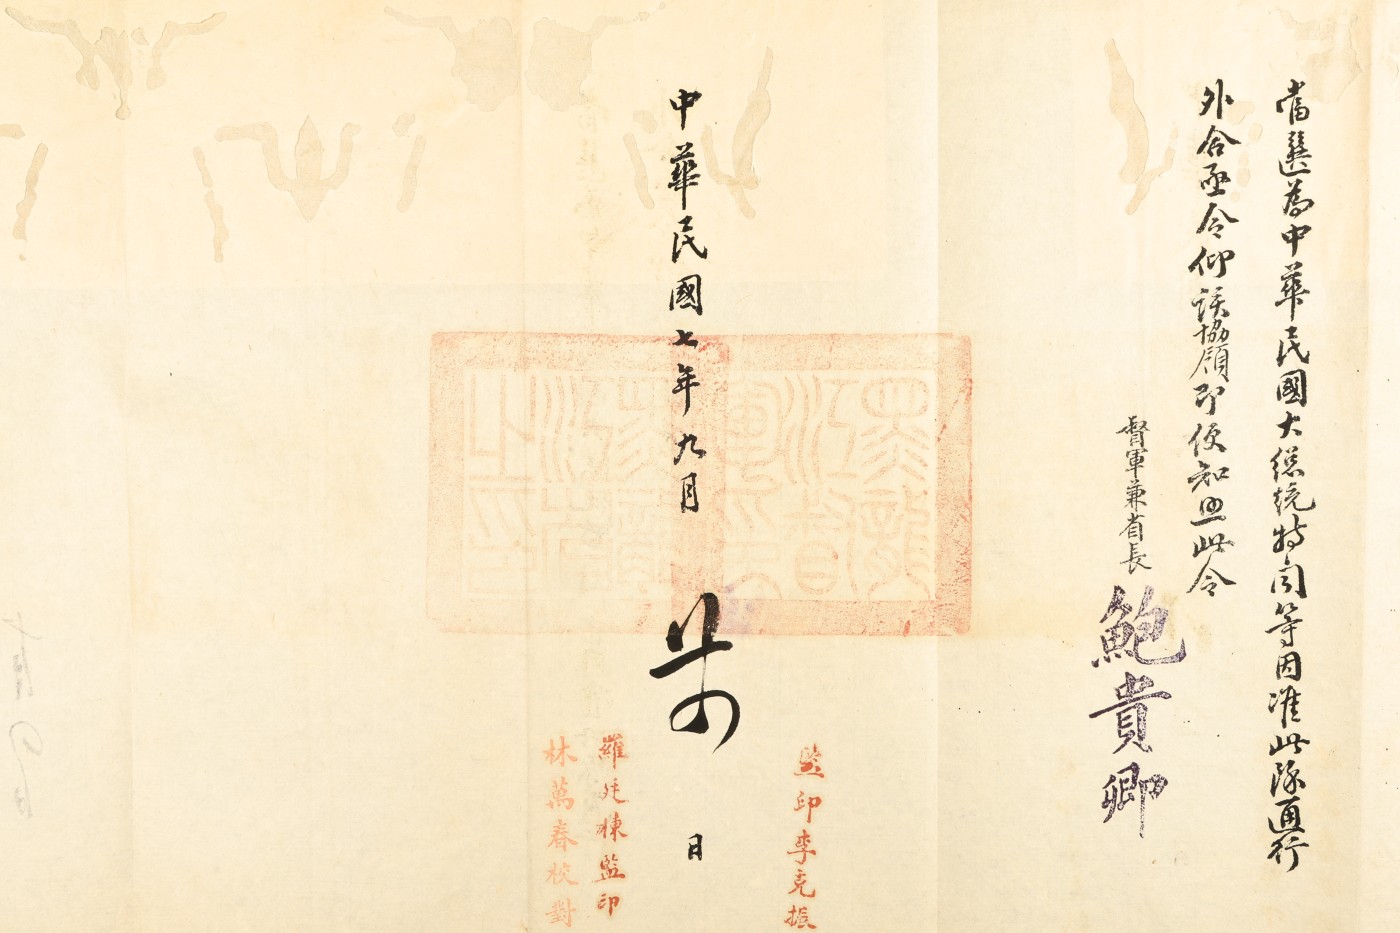 當選為中華民國大總統特聞等因准此除通行
外合亟令仰該協領即便知照此令
督軍兼省長鮑貴卿
監印李克振
中華民國七年九月 日
羅廷棟監印
林萬春校對